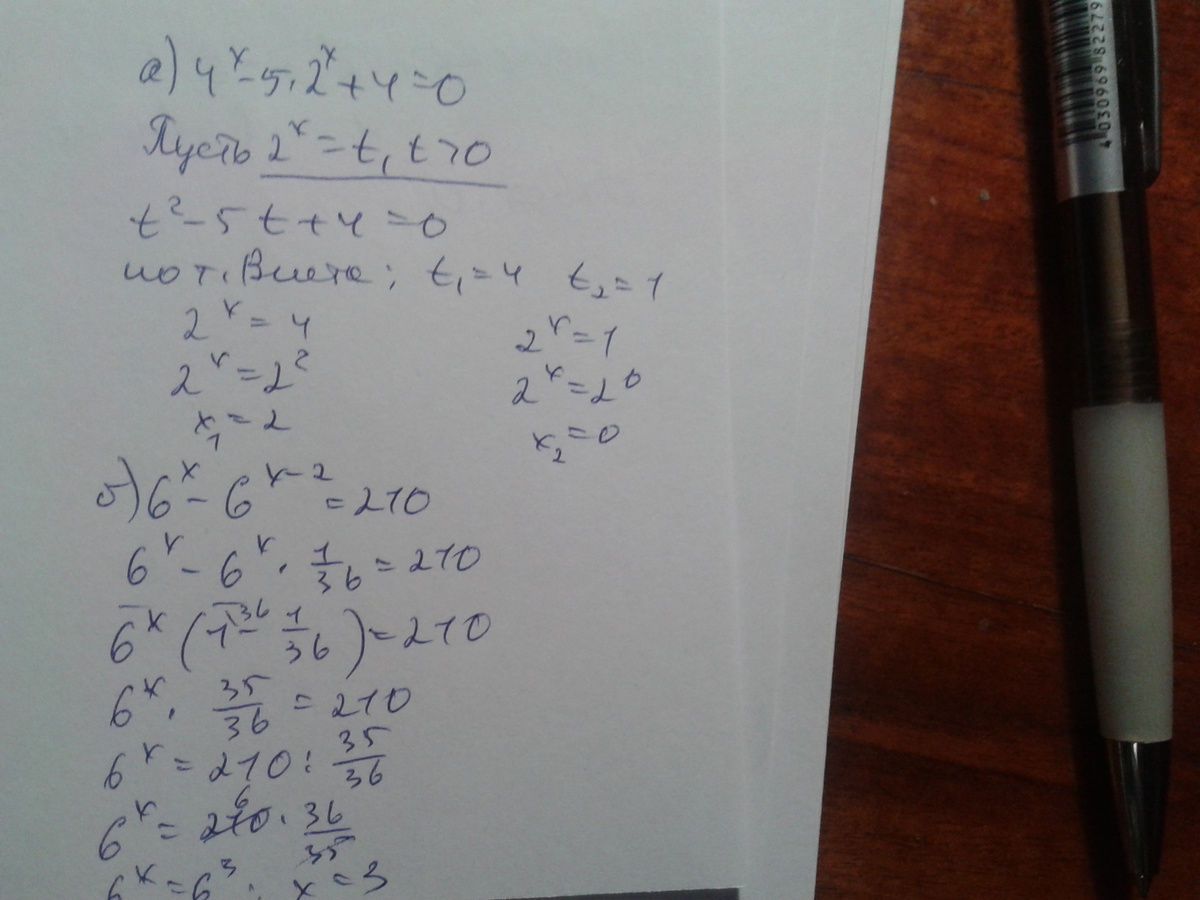 а) 4ˣ - 5·2ˣ + 4 = 0
Пусть 2ˣ = t, t > 0
t² - 5t + 4 = 0
по т. Виета: t₁ = 4 t₂ = 1
2ˣ = 4 2ˣ = 1
2ˣ = 2² 2ˣ = 2⁰
x₁ = 2 x₂ = 0
б) 6ˣ - 6ˣ⁻² = 210
6ˣ - 6ˣ · 1/36 = 210
6ˣ (1³⁶ - 1/36) = 210
6ˣ · 35/36 = 210
6ˣ = 210 : 35/36
6ˣ = 210⁶ · 36/35
6ˣ = 6³; x = 3
4 030969 82279